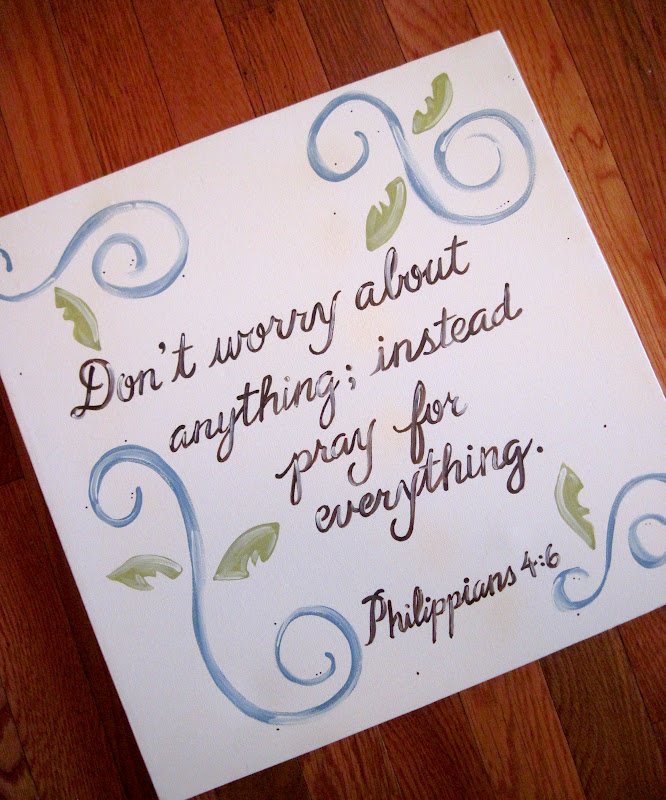 Don't worry about
anything; instead
pray for
everything.
Philippians 4:6